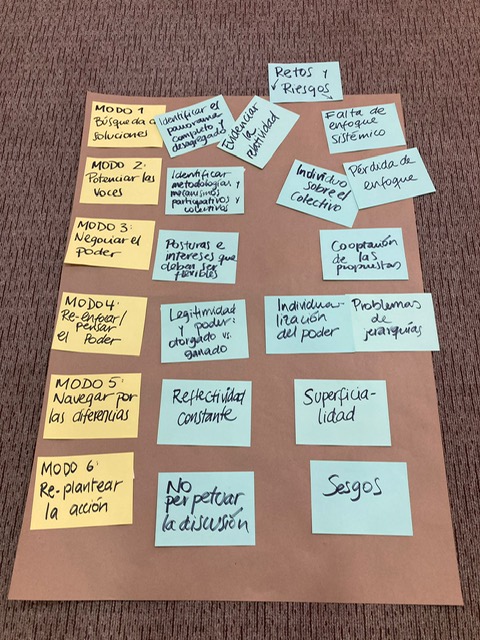 Retos y
Riesgos
MODO 1
Búsqueda de
soluciones
Identificar el
panorama
completo y
desagregado
Evidenciar
la
relatividad
Falta de
enfoque
sistémico
MODO 2:
Potenciar las
voces
Identificar
metodologías y
mecanismos
participativos y
colectivos
Individuo
sobre el
colectivo
Pérdida de
enfoque
MODO 3:
Negociar el
poder
Posturas e
intereses que
deban ser
flexibles
Cooptación
de las
propuestas
MODO 4:
Re-enfocar/
Pensar
el Poder
Legitimidad
y poder:
otorgado vs.
ganado
Individua-
lización
del poder
Problemas
de
jerarquías
MODO 5:
Navegar por
las diferencias
Reflectividad
constante
Superficia-
lidad
MODO 6:
Re-plantear
la acción
No
perpetuar
la discusión
Sesgos